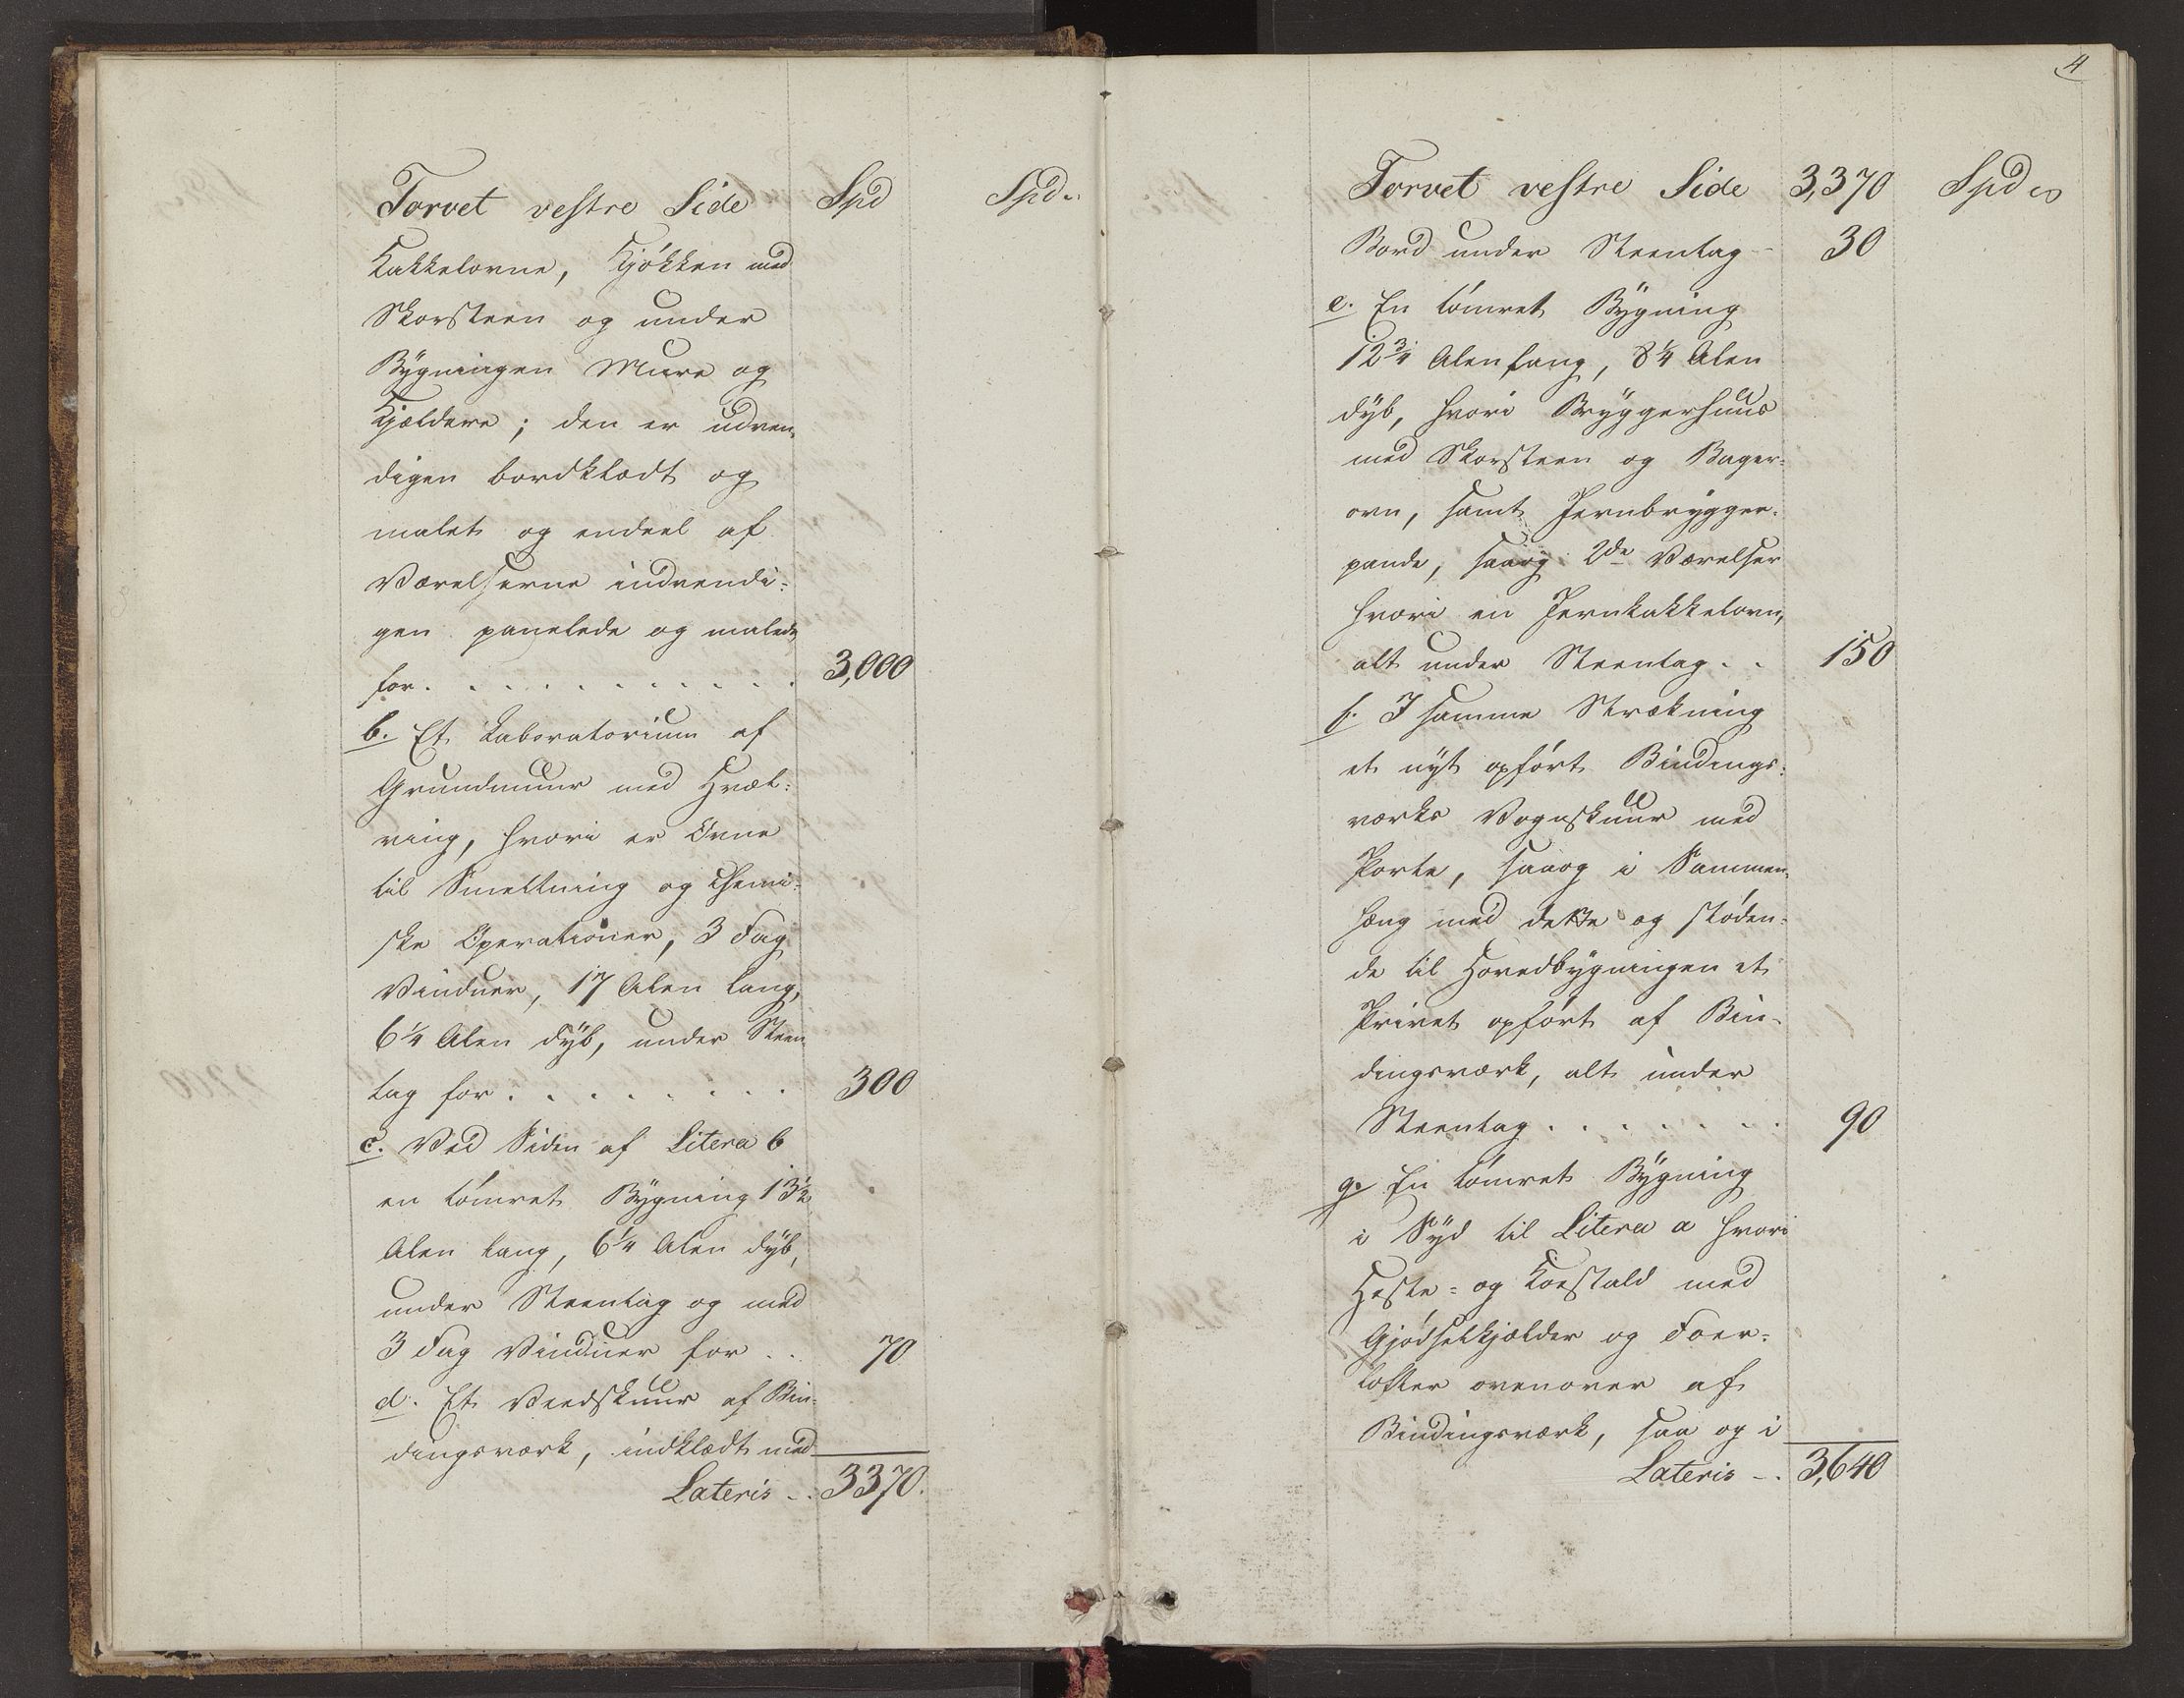 Torvet vestre Side Spd Spd.
Kakkelovne, Kjökken med
Skorsteen og under
Bÿgningen Mure og
Kjældere; den er udven-
digen bordklædt og
malet og endeel af
Værelserne indvendi-
gen panelede og malede
for . . . . . . . . . . 3,000
b. Et Laboratorium af
Grundmuur med Hvæl-
ving, hvori er Ovne
til Smeltning og chemi-
ske Operationer, 3 Fag
Vinduer, 17 Alen lang,
6 1/4 Alen dÿb, under Steen
tag for . . . . . . . . 300
c. Ved Siden af Litera b
en tömret Bÿgning 13 1/2
Alen lang, 6 1/4 Alen dÿb,
under Steentag og med
3 Fag Vinduer for . . 70
d. Et Veedskuur af Bin-
dingsværk, indklædt med
Lateris - . 3370.
4
Torvet vestre Side 3,370 Spd
Bord under Steentag - 30
e. En tömret Bÿgning
12 3/4 Alen lang, 8 1/4 Alen
dÿb, hvori Brÿggerhuus
med Skorsteen og Bager-
ovn, samt Jernbrÿgger-
pande, saaog 2de Værelser
hvori en Jernkakkelovn,
alt under Steentag . . 150
f. I samme Strækning
et nÿt opfört Bindings-
værks Vognskuur med
Porte, saaog i Sammen-
hæng med dette og stöden-
de til Hovedbÿgningen et
Privet opfört af Bin-
dingsværk, alt under
Steentag . . . . . . . 90
g. En tömret Bÿgning
i Sÿd til Litera a hvori
Heste- og Koestald med
Gjödselkjælder og Foer-
lofter ovenover af
Bindingsværk, saa og i
Lateris - . 3,640